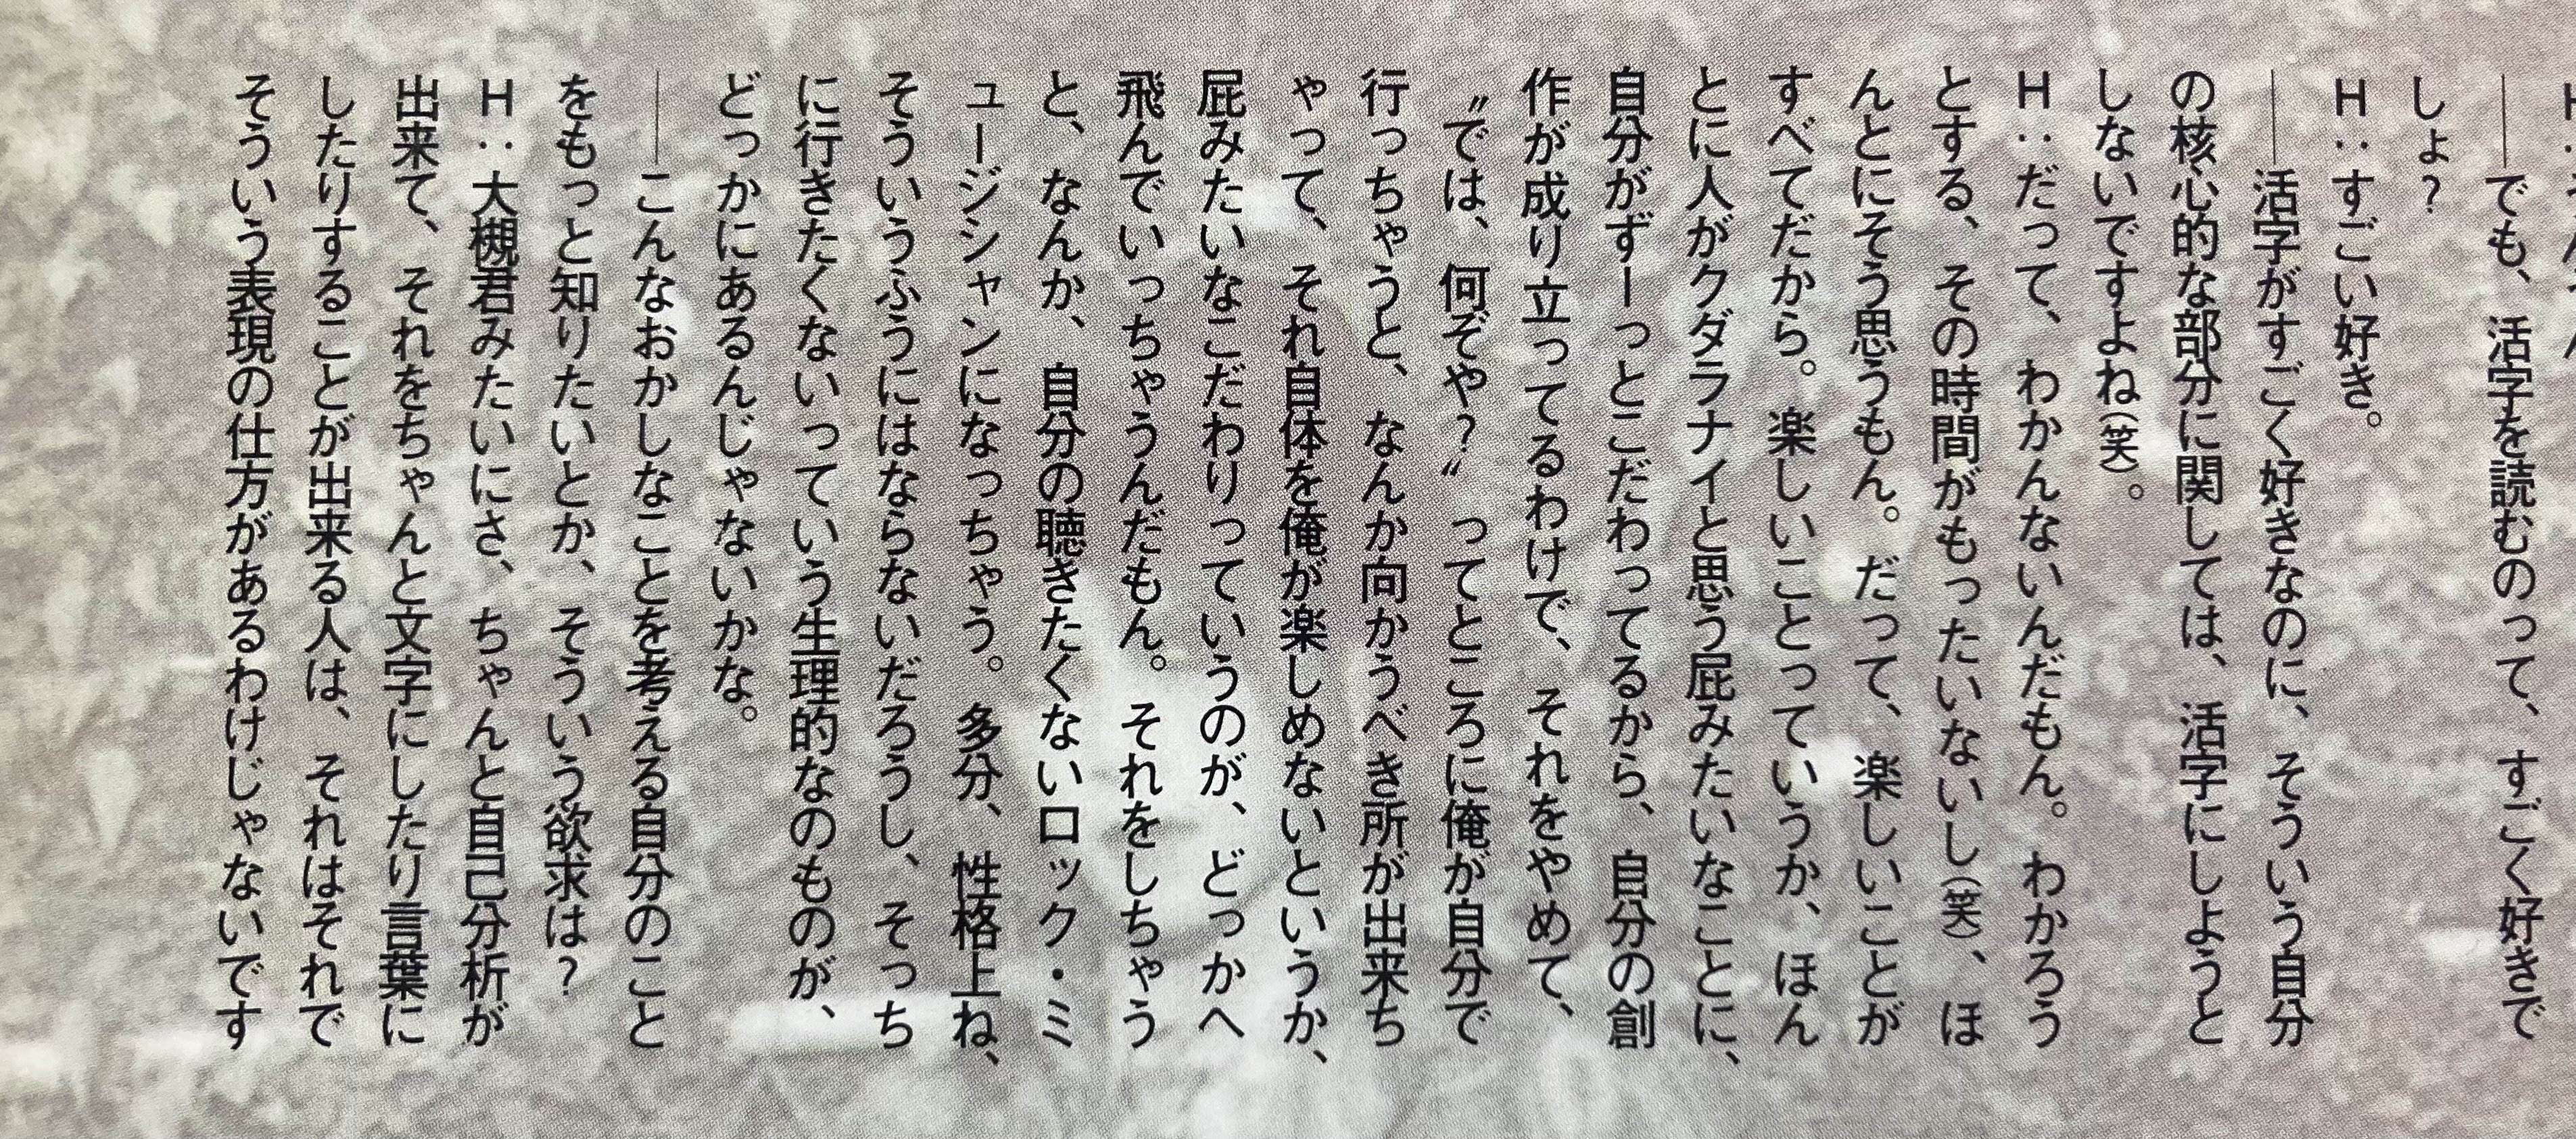 ――でも、活字を読むのって、すごく好きで
しょ？
H：すごい好き。
――活字がすごく好きなのに、そういう自分
の核心的な部分に関しては、活字にしようと
しないですよね（笑）。
H：だって、わかんないんだもん。わかろう
とする、その時間がもったいないし（笑）、ほ
んとにそう思うもん。だって、楽しいことが
すべてだから。楽しいことっていうか、ほん
とに人がクダラナイと思う屁みたいなことに、
自分がずーっとこだわってるから、自分の創
作が成り立ってるわけで、それをやめて、
〝では、何ぞや？〟ってところに俺が自分で
行っちゃうと、なんか向かうべき所が出来ち
ゃって、それ自体を俺が楽しめないというか、
屁みたいなこだわりっていうのが、どっかへ
飛んでいっちゃうんだもん。それをしちゃう
と、なんか、自分の聴きたくないロック・ミ
ュージシャンになっちゃう。多分、性格上ね、
そういうふうにはならないだろうし、そっち
に行きたくないっていう生理的なのものが、
どっかにあるんじゃないかな。
――こんなおかしなことを考える自分のこと
をもっと知りたいとか、そういう欲求は？
H：大槻君みたいにさ、ちゃんと自己分析が
出来て、それをちゃんと文字にしたり言葉に
したりすることが出来る人は、それはそれで
そういう表現の仕方があるわけじゃないです